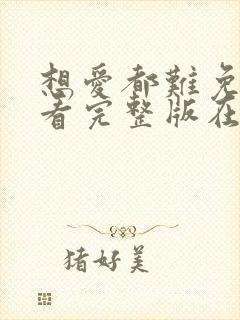 想愛都難免
看完整版在
猪好美